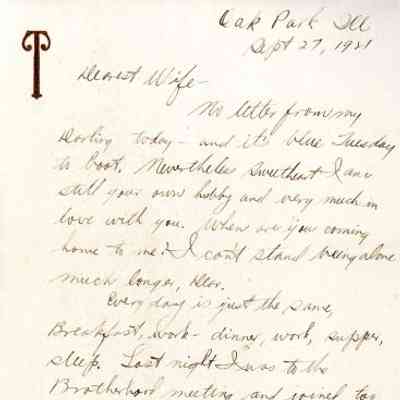 T
Oak Park Ill
Sept 27, 1921
Dearest Wife -
No letter from my
Darling today - and it's blue Tuesday
to boot. Nevertheless sweetheart I am
still your own hubby and very much in
love with you. When are you coming
home to me? I can't stand being alone
much longer, Dear.
Every day is just the same,
Breakfast, work - dinner, work, supper,
sleep. Last night I was to the
Brotherhood meeting and joined too